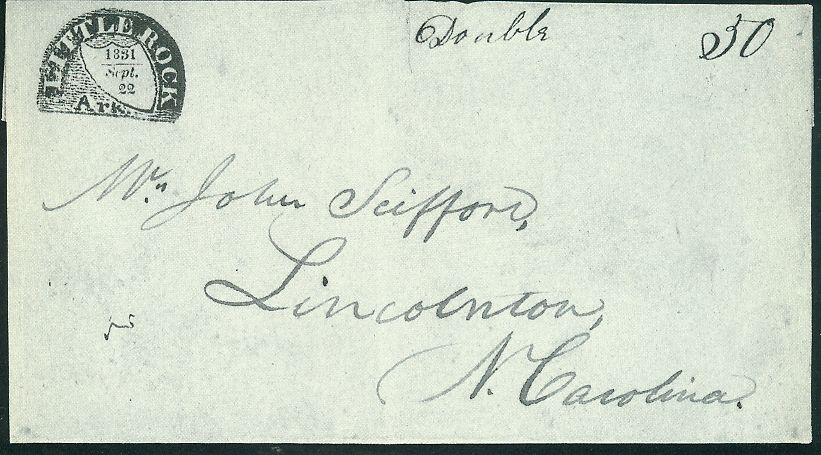 LITTLE ROCK
1831
Sept.
22
Ark.
Double
50
Mr. John Seifford,
Lincolnton,
N. Carolina.